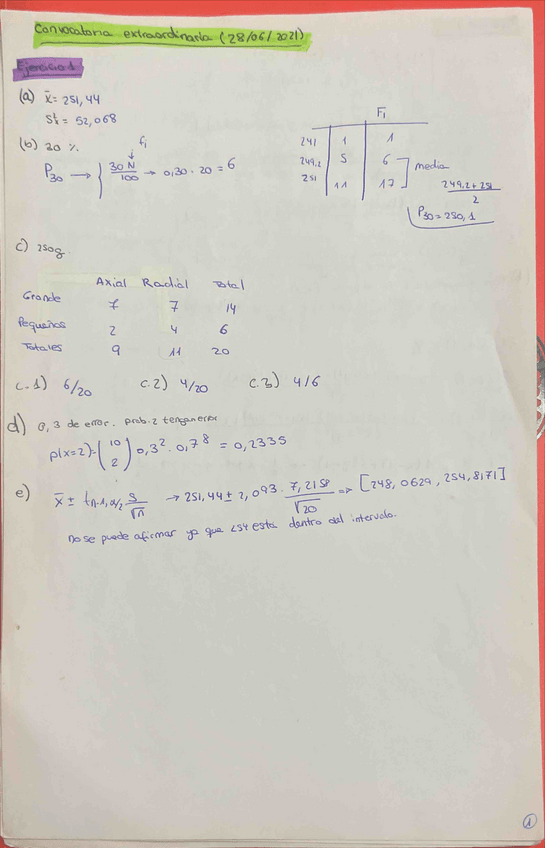 Convocatoria extraordinaria (28/06/2021)
Ejercicio 1
(a) x̄ = 251,44
S²x = 52,068
(b) 20 %.
fi
P30 → 30 N/100 → 0,30 · 20 = 6
Fi
241 1 1
249,2 5 6
251 11 17
media
249,2 + 251 / 2
P30 = 250,1
c) 250g.
Axial Radial Total
Grande 7 7 14
Pequeños 2 4 6
Totales 9 11 20
c.1) 6/20 c.2) 4/20 c.3) 4/6
d) 0,3 de error. prob. 2 tengan error
p(x=2) = (10 2) 0,3² · 0,7⁸ = 0,2335
e) x̄ ± t n-1, α/2 S/√n → 251,44 ± 2,093 · 7,2158/√20 => [248,0629, 254,8171]
No se puede afirmar ya que 254 esta dentro del intervalo.
1